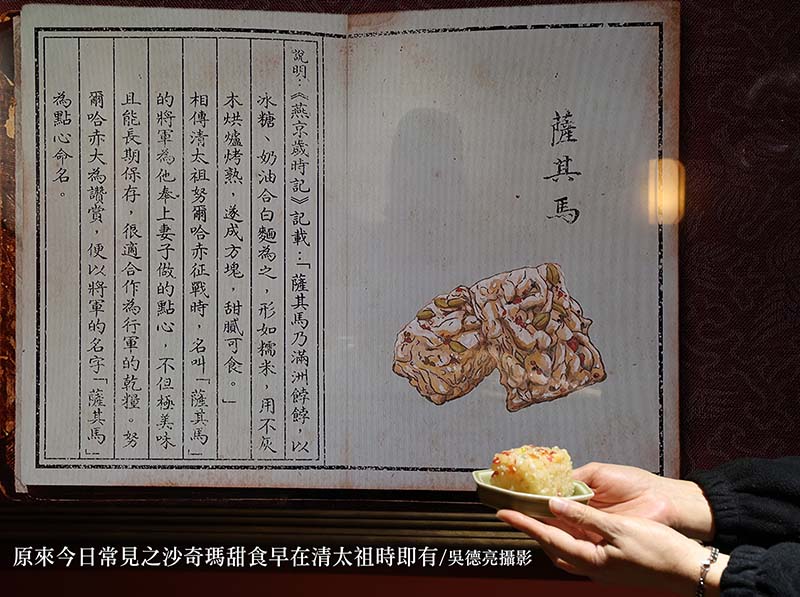 薩其馬
說明：《燕京歲時記》記載：「薩其馬乃滿洲餑餑，以
冰糖、奶油合白麵為之，形如糯米，用不灰
木烘爐烤熟，遂成方塊，甜膩可食。」
相傳清太祖努爾哈赤征戰時，名叫「薩其馬」
的將軍為他奉上妻子做的點心，不但極美味
且能長期保存，很適合作為行軍的乾糧。努
爾哈赤大為讚賞，便以將軍的名字「薩其馬」
為點心命名。
原來今日常見之沙奇瑪甜食早在清太祖時即有/吳德亮攝影